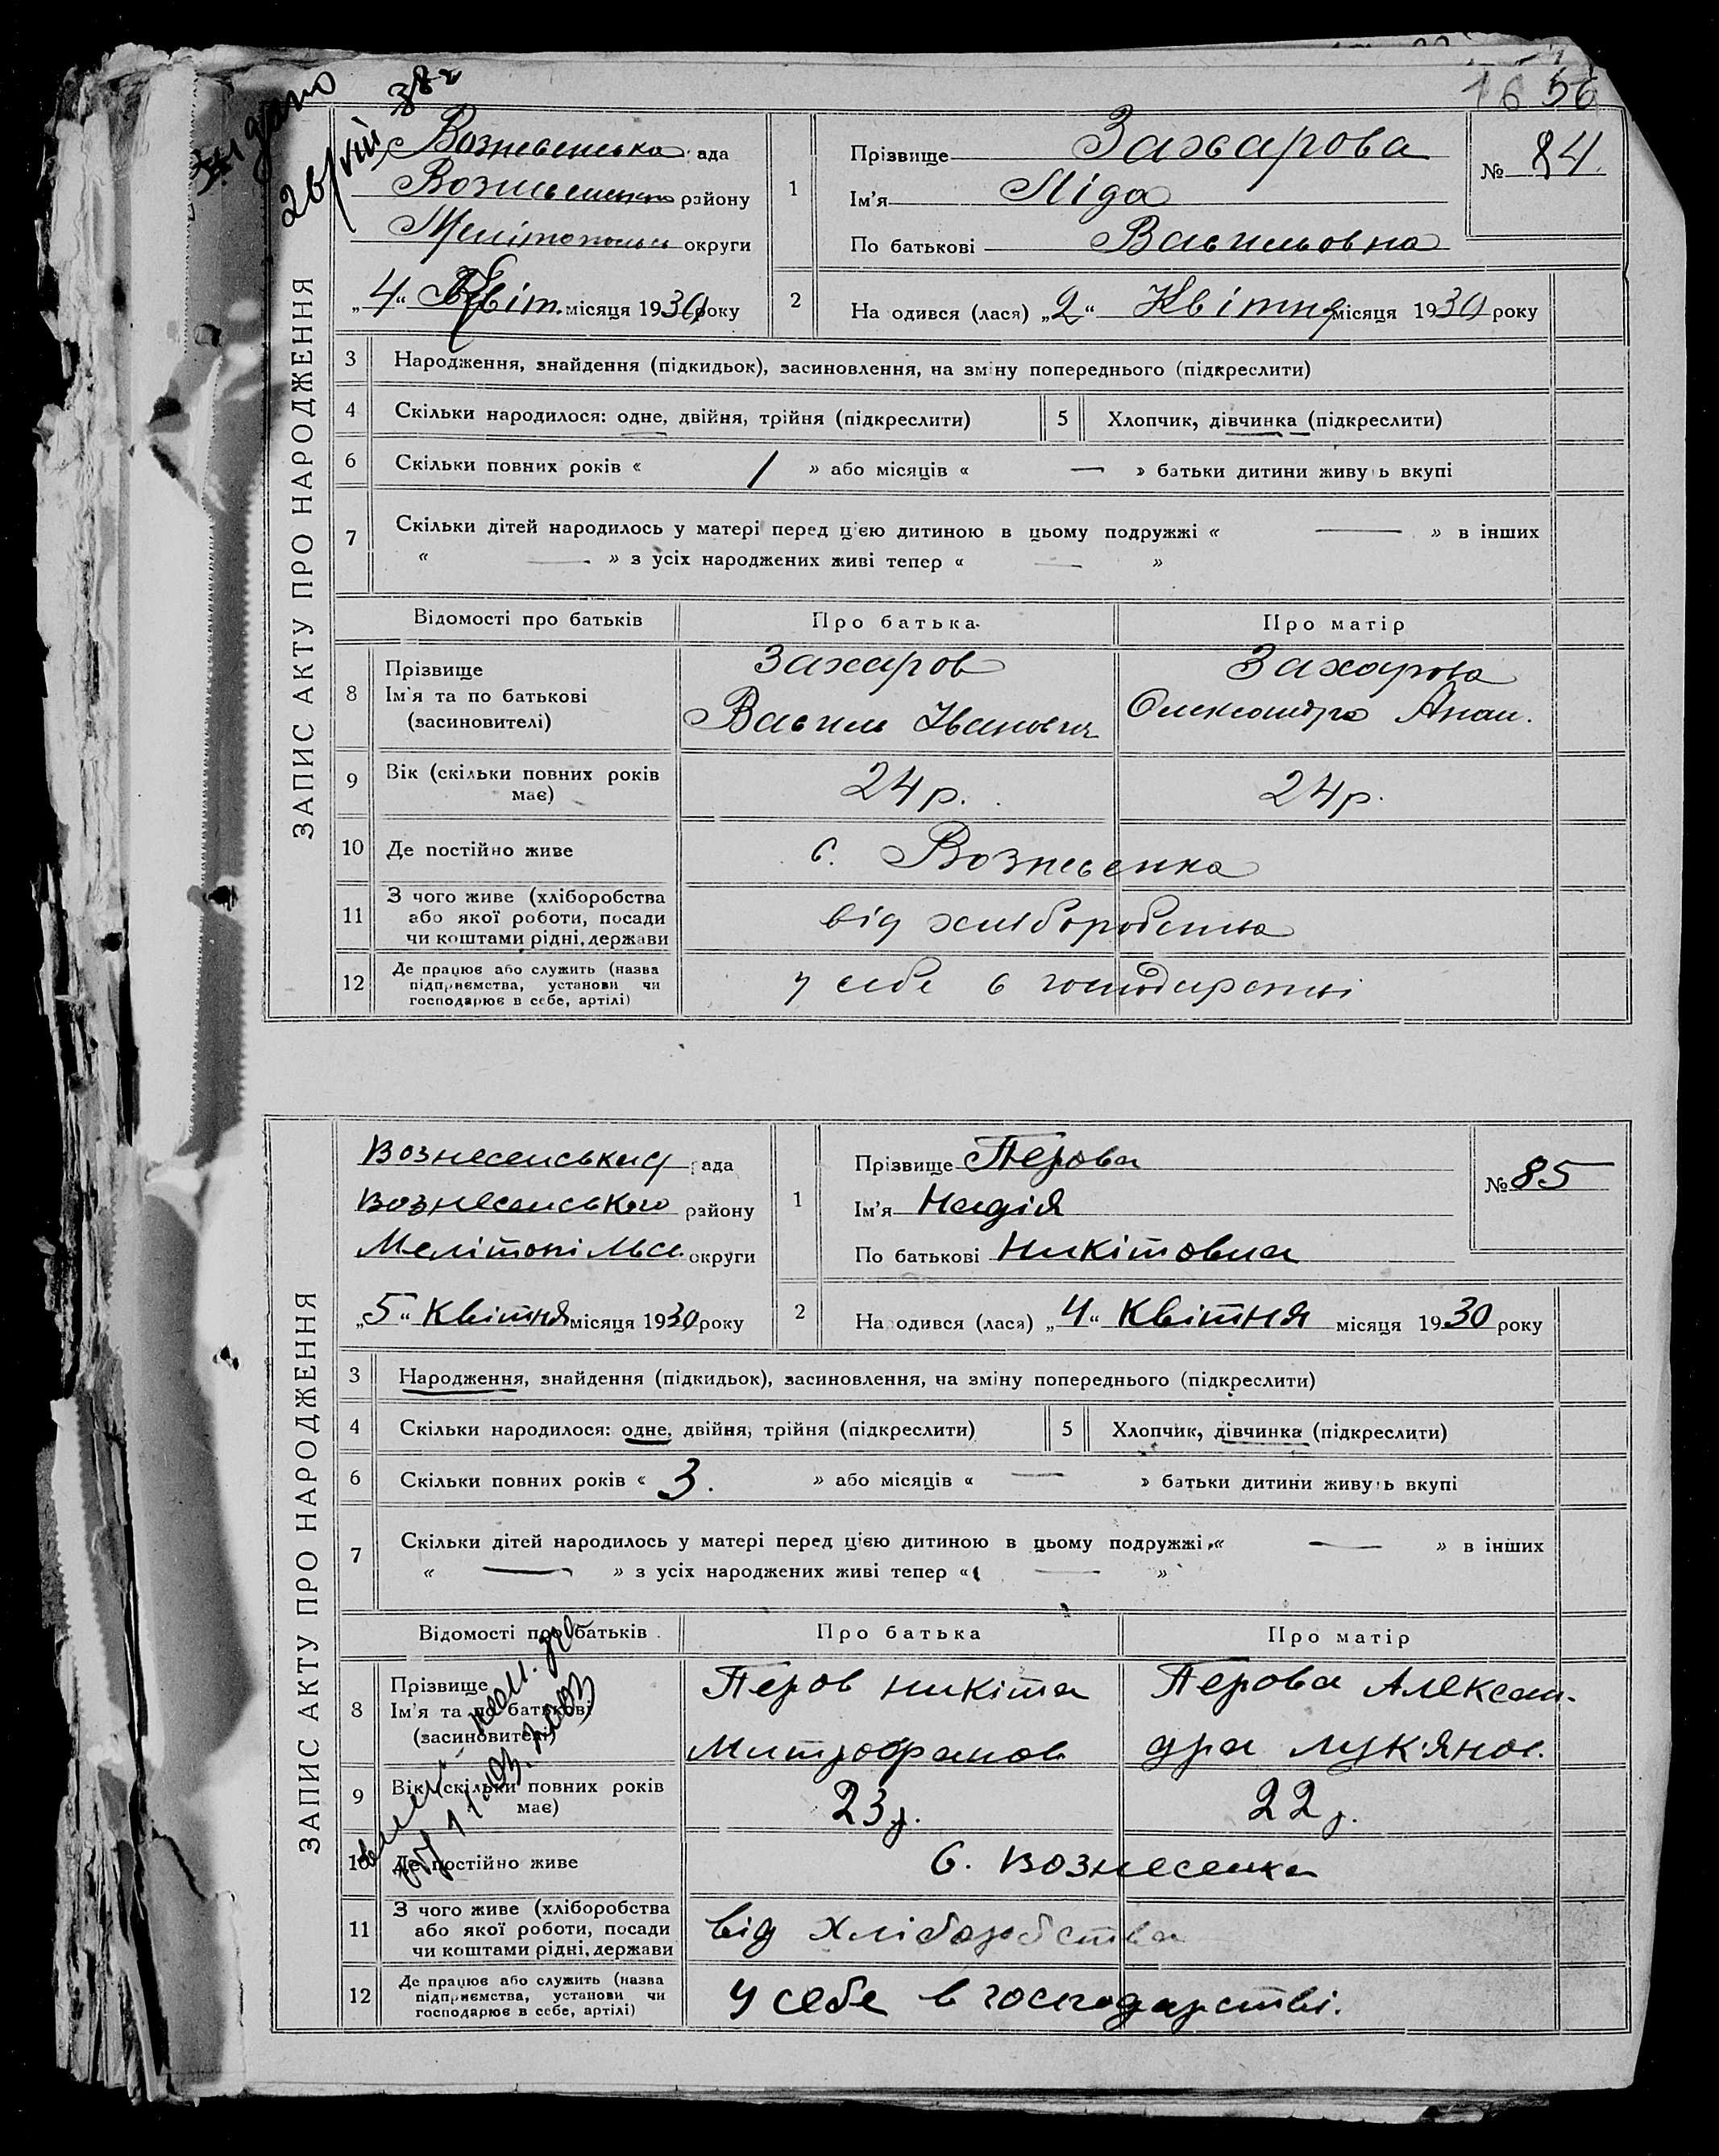 56
ЗАПИС АКТУ ПРО НАРОДЖЕННЯ
Вознесенська рада
району
округи
„4“ Квіт. місяця 1930 року
1
Прізвище Захарова
Ім'я Ліда
По батькові Васильовна
№ 84.
2
Народився (лася) „2“ Квітня місяця 1930 року
3 Народження, знайдення (підкидьок), засиновлення, на зміну попереднього (підкреслити)
4 Скільки народилося: одне, двійня, трійня (підкреслити)
5 Хлопчик, дівчинка (підкреслити)
6 Скільки повних років « 1 » або місяців « — » батьки дитини живуть вкупі
7 Скільки дітей народилось у матері перед ц'єю дитиною в цьому подружжі « — » в інших
« — » з усіх народжених живі тепер « — »
Відомості про батьків Про батька Про матір
8 Прізвище
Ім'я та по батькові
(засиновителі)
Захаров
Василь Іванович
Захарова
Олександра Анан.
9 Вік (скільки повних років має)
24 р. 24 р.
10 Де постійно живе
с. Вознесенка
11 З чого живе (хліборобства
або якої роботи, посади
чи коштами рідні, держави
від хліборобства
12 Де працює або служить (назва
підприємства, установи чи
господарює в себе, артілі)
у себе в господарстві
ЗАПИС АКТУ ПРО НАРОДЖЕННЯ
Вознесенська рада
Вознесенського району
Мелітопільс. округи
„5“ Квітня місяця 1930 року
1
Прізвище Перова
Ім'я Надія
По батькові Никітовна
№ 85
2
Народився (лася) „4“ Квітня місяця 1930 року
3 Народження, знайдення (підкидьок), засиновлення, на зміну попереднього (підкреслити)
4 Скільки народилося: одне, двійня, трійня (підкреслити)
5 Хлопчик, дівчинка (підкреслити)
6 Скільки повних років « 3. » або місяців « — » батьки дитини живуть вкупі
7 Скільки дітей народилось у матері перед ц'єю дитиною в цьому подружжі « — » в інших
« — » з усіх народжених живі тепер « — »
Відомості про батьків Про батька Про матір
8 Прізвище
Ім'я та по батькові
(засиновителі)
Перов Никіта
Митрофанов
Перова Алексан-
дра Лук'янов.
9 Вік (скільки повних років має)
23 р. 22 р.
10 Де постійно живе
С. Вознесенка
11 З чого живе (хліборобства
або якої роботи, посади
чи коштами рідні, держави
від хліборобства
12 Де працює або служить (назва
підприємства, установи чи
господарює в себе, артілі)
У себе в господарстві.